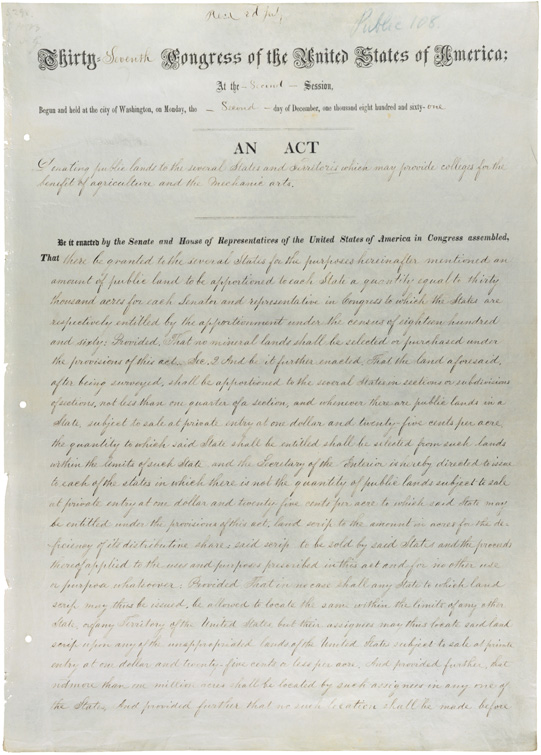 Public 108
Thirty-Seventh Congress of the United States of America;
At the - Second - Session,
Begun and held at the city of Washington, on Monday, the - Second - day of December, one thousand eight hundred and sixty-one
AN ACT
Donating public lands to the several States and Territories which may provide colleges for the
benefit of agriculture and the mechanic arts.
Be it enacted by the Senate and House of Representatives of the United States of America in Congress assembled,
That there be granted to the several States for the purposes hereinafter mentioned an
amount of public land to be apportioned to each State a quantity equal to thirty
thousand acres for each Senator and representative in Congress to which the States are
respectively entitled by the apportionment under the census of eighteen hundred
and sixty: Provided, That no mineral lands shall be selected or purchased under
the provisions of this act. Sec. 2 And be it further enacted That the land aforesaid,
after being surveyed, shall be apportioned to the several States in sections or subdivisions
of sections, not less than one quarter of a section, and whenever there are public lands in a
State, subject to sale at private entry at one dollar and twenty-five cents per acre,
the quantity to which said State shall be entitled shall be selected from such lands
within the limits of such State and the Secretary of the Interior is hereby directed to issue
to each of the states in which there is not the quantity of public lands subject to sale
at private entry at one dollar and twenty five cents per acre to which said State may
be entitled under the provisions of this act, land scrip to the amount in acres for the de-
ficiency of its distributive share; said scrip to be sold by said States and the proceeds
thereof applied to the uses and purposes prescribed in this act and for no other use
or purpose whatsoever: Provided That in no case shall any State to which land
scrip may thus be issued, be allowed to locate the same within the limits of any other
State, or of any Territory of the United States but their assignees may thus locate said land
scrip upon any of the unappropriated lands of the United States subject to sale at private
entry at one dollar and twenty-five cents or less per acre. And provided further, that
not more than one million acres shall be located by such assignees in any one of
the States. And provided further that no such location shall be made before